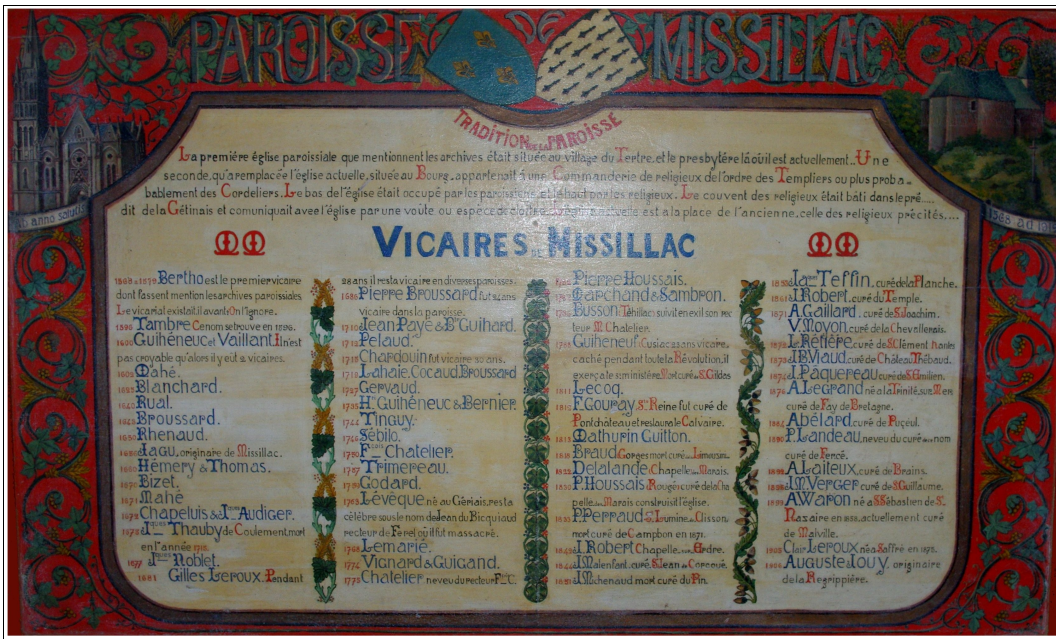 PAROISSE DE MISSILLAC
TRADITION DE LA PAROISSE
La première église paroissiale que mentionnent les archives était située au village du Tertre, et le presbytère là où il est actuellement. Une
seconde, qu'a remplacée l'église actuelle, située au Bourg, appartenait à une Commanderie de religieux de l'ordre des Templiers ou plus proba-
bablement des Cordeliers. Le bas de l'église était occupé par les paroissiens et le haut par les religieux. Le couvent des religieux était bâti dans le pré....
dit de la Gétinais et comuniquait avec l'église par une voûte ou espèce de cloître. L'église actuelle est à la place de l'ancienne, celle des religieux précités....
anno salutis
VICAIRES DE MISSILLAC
Bertho est le premier vicaire
dont fassent mention les archives paroissiales
Le vicariat existait il avant? On l'ignore.
Tambre Ce nom se trouve en
Guihéneuc et Vaillant. Il n'est
pas croyable qu'alors il y eût 2 vicaires.
Mahé.
Blanchard.
Rual.
Broussard.
Rhenaud.
Jagu, originaire de Missillac.
Hémery & Thomas.
Bizet.
1671 Mahé
Chapeluis & Audiger.
Thauby de Coulement, mort
en l'année
1677 Noblet.
1681 Gilles Leroux. Pendant
28 ans il resta vicaire en diverses paroisses.
Pierre Broussard fut 2 ans
vicaire dans la paroisse.
Jean Payé & Guihard.
Pelaud.
Chardouin fut vicaire 20 ans.
Lahaie. Cocaud. Broussard
Gervaud.
Guihéneuc & Bernier.
Tinguy.
1744 Sébilo.
Chatelier.
Trimereau.
Godard.
1763 Lévêque né au Gériais, resta
célèbre sous le nom de Jean du Bicquiaud
recteur de Férel où il fut massacré.
1768 Lemarié.
1774 Vignard & Guigand.
1775 Chatelier neveu du recteur
Pierre Houssais.
Marchand & Sambron.
Busson Théhillac suivit en exil son rec
teur M. Chatelier.
Guiheneuf Cusiac 2 ans vicaire
caché pendant toute la Révolution, il
exerça le ministère. Mort curé de St Gildas
Lecoq.
F. Gouray Ste Reine fut curé de
Pontchâteau et restaura le Calvaire.
Mathurin Guitton.
Braud Gorges mort curé au Limousin.
Delalande Chapelle des Marais.
P. Houssais Rougé curé de la Cha
pelle des Marais construisit l'église.
P. Perraud Clisson
mort curé de Campbon en 1871.
J. Robert Chapelle sur Erdre.
Malenfant curé St Jean de Corcoué.
Michenaud mort curé du Pin.
Teffin, curé de la Planche.
J. Robert. curé du Temple.
1871 A. Gaillard. curé de St Joachim.
V. Moyon. curé de la Chevallerais.
Réfière. curé de St Clément Nantes
J.B. Viaud. curé de Château Thébaud.
Paquereau curé de St Emilien.
A. Legrand né à la Trinité sur Mer
curé de Fay de Bretagne.
Abélard. curé de Puçeul.
P. Landeau, neveu du curé de ce nom
curé de Fercé.
A. Laiteux. curé de Brains.
Verger curé de St Guillaume.
A. Waron né à St Sébastien de St
Nazaire en actuellement curé
de Malville.
Clair Leroux né à Saffré en 1872.
Auguste Touy. originaire
de la Regrippière.